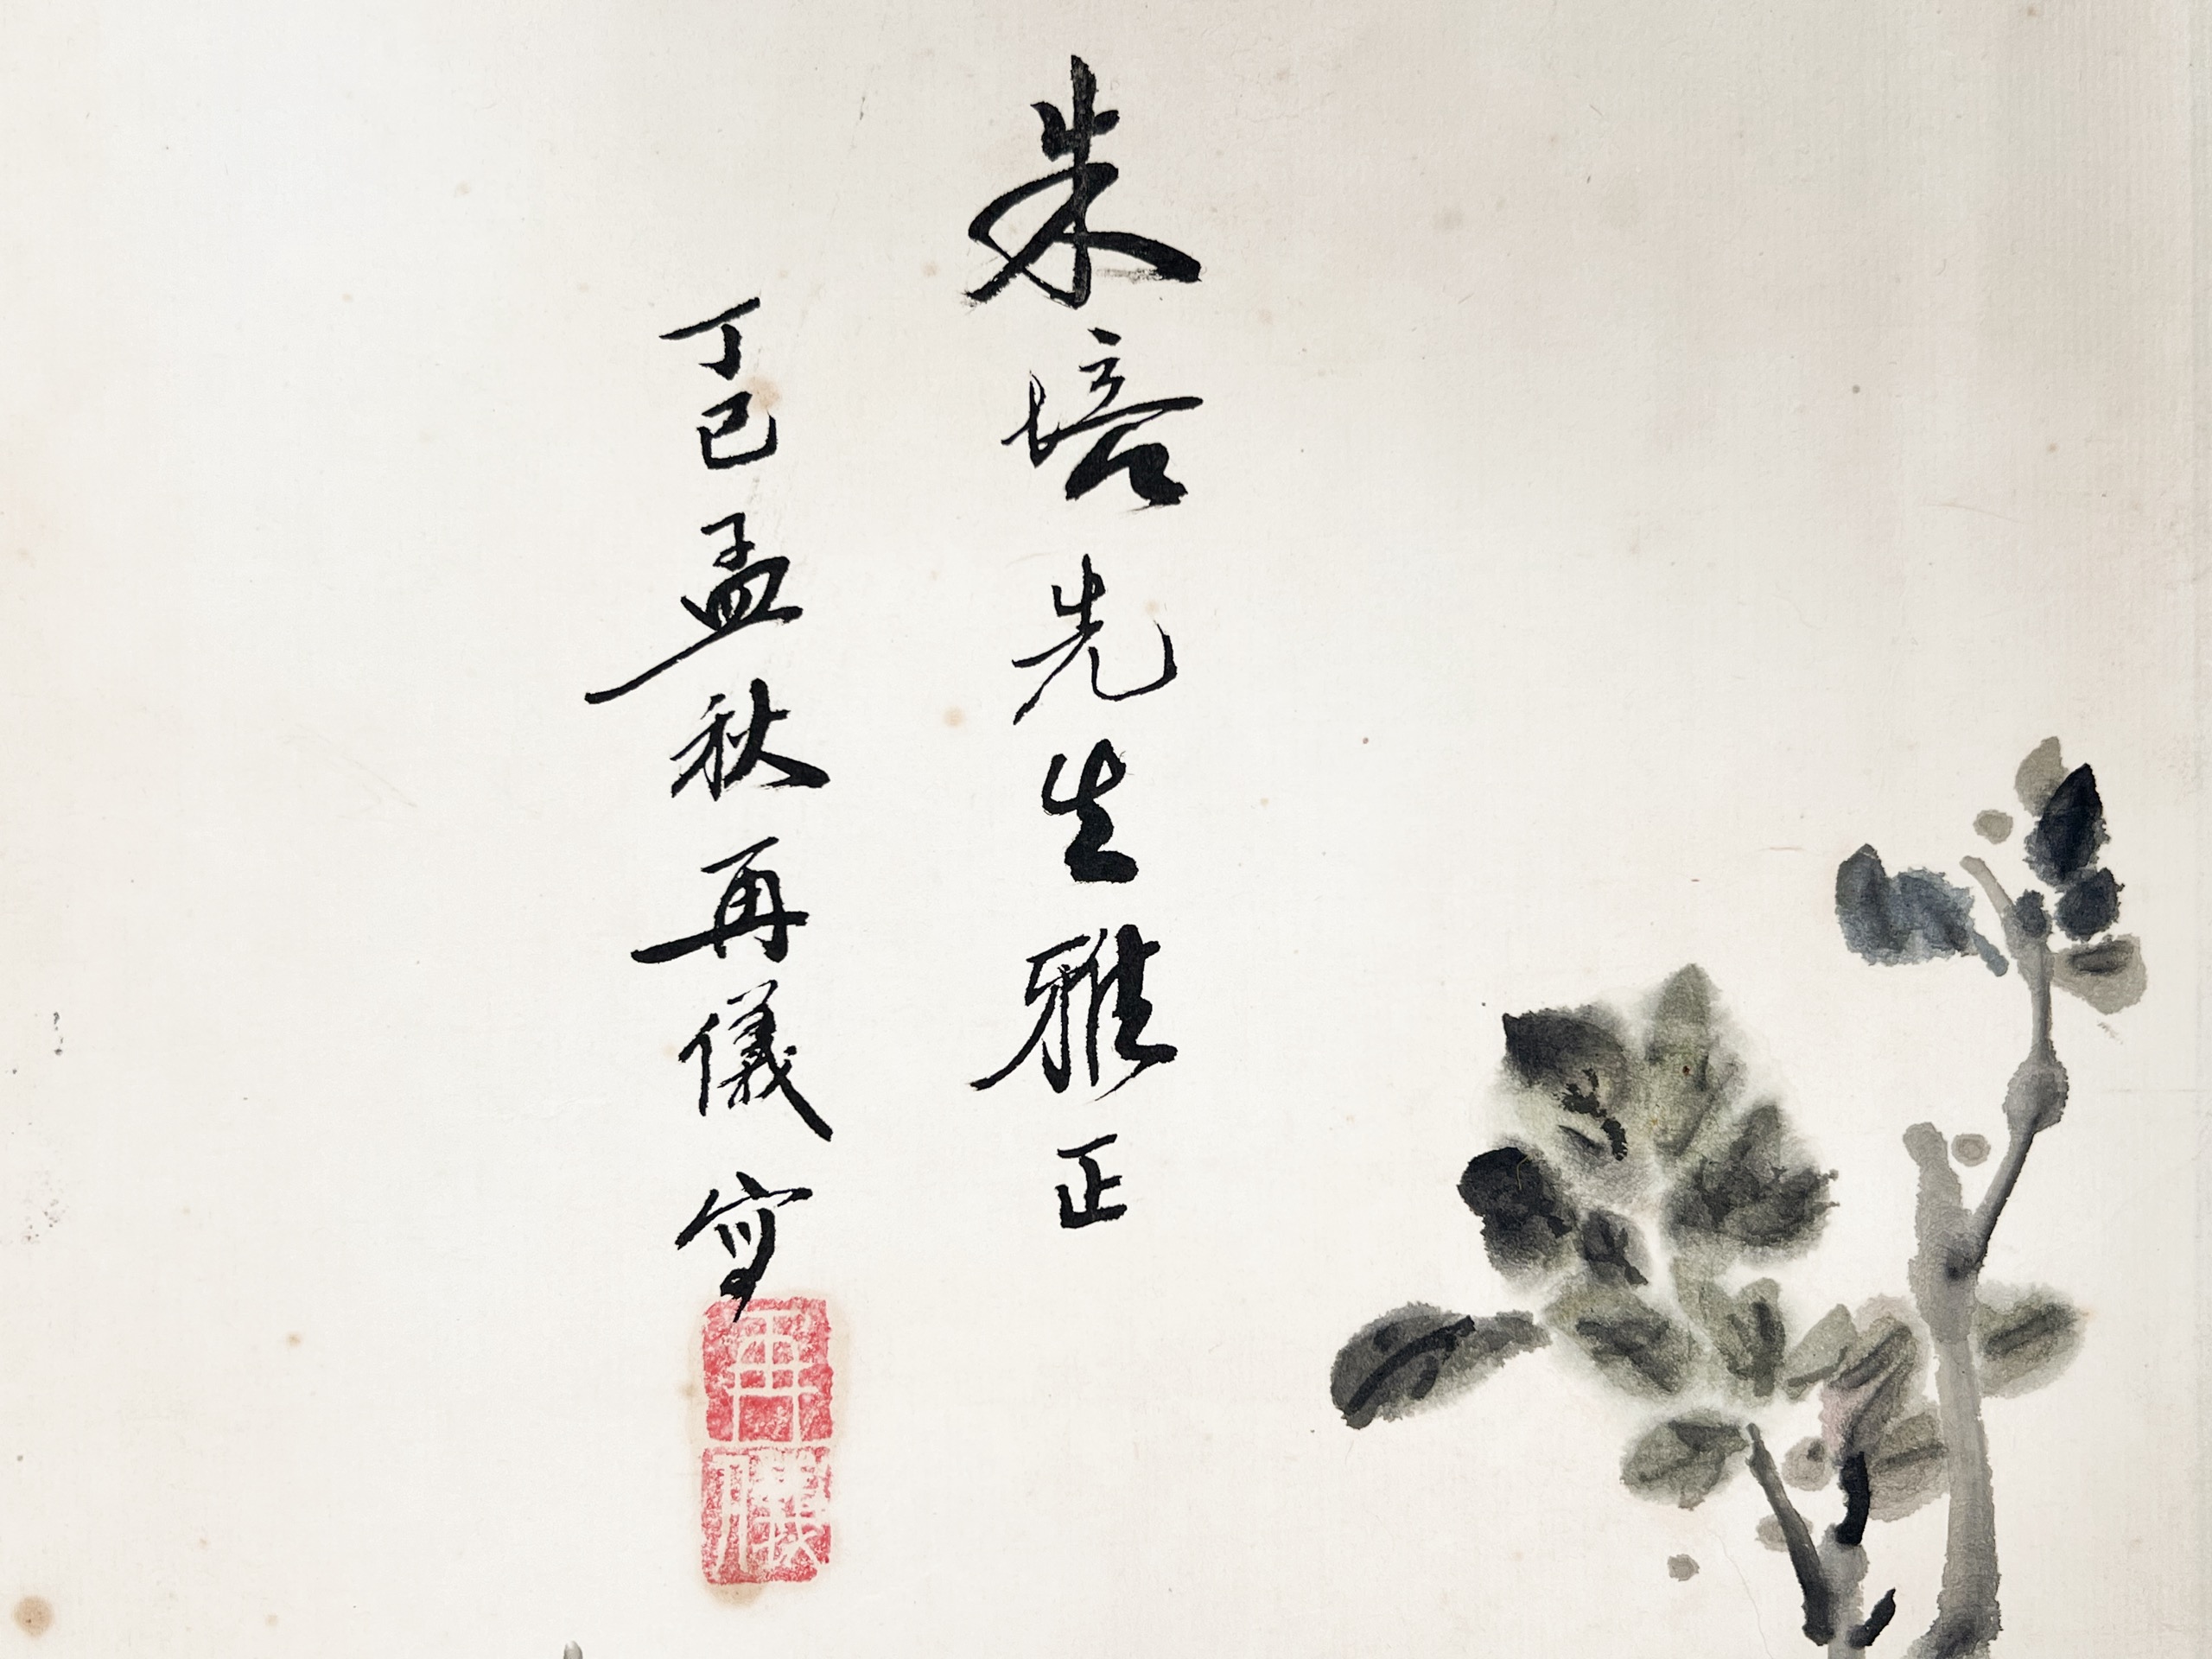 朱培先生雅正
丁巳孟秋再儀寫
再儀